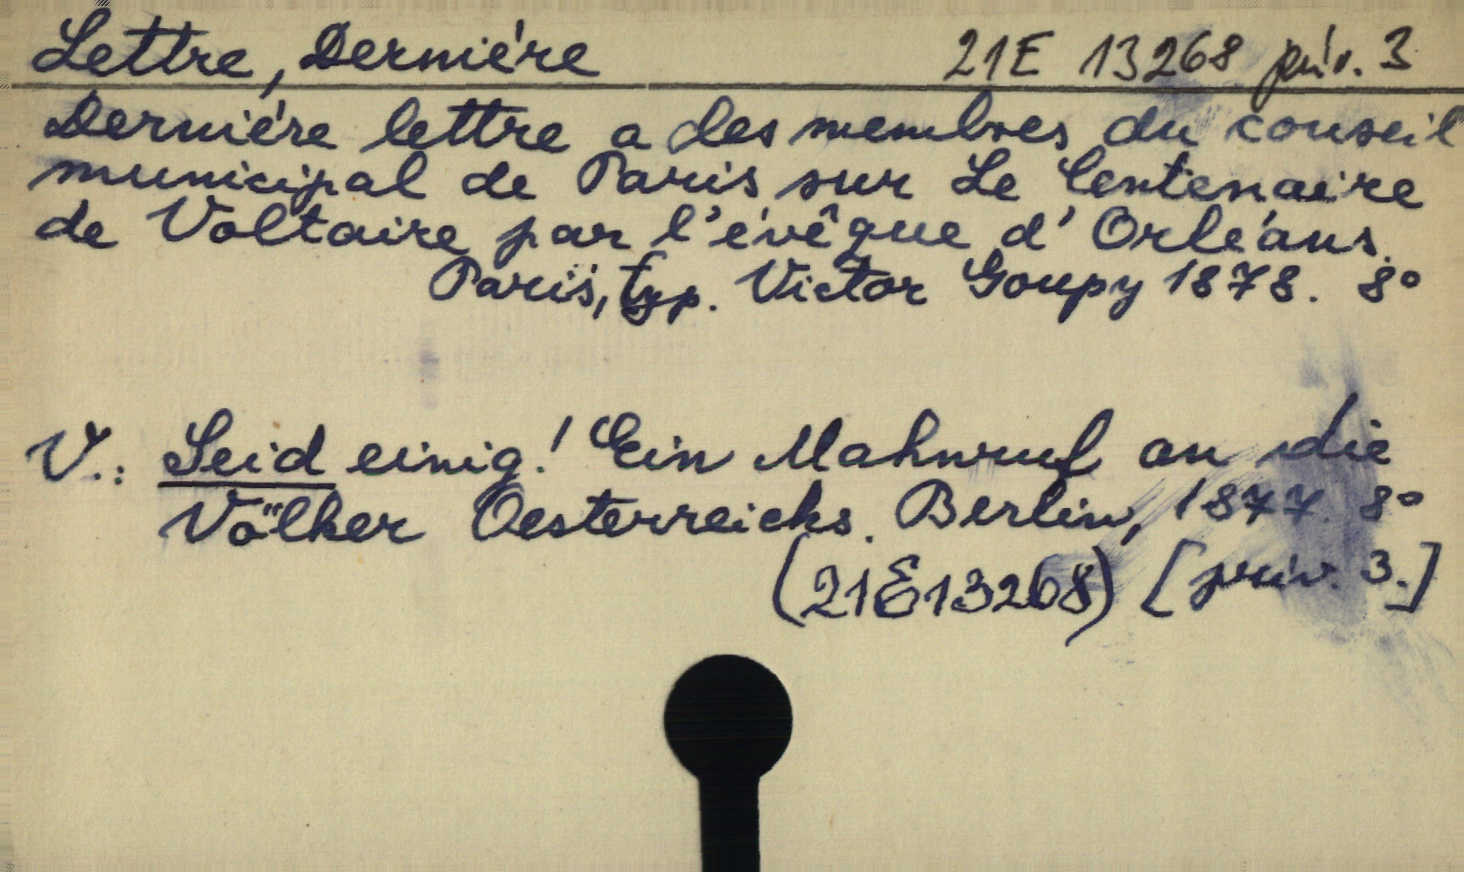 Lettre, Derniére
21E 13268 přív. 3
Derniére lettre a des membres du conseil
municipal de Paris sur Le Centenaire
de Voltaire par l'évêque d'Orléans.
Paris, typ. Victor Goupy 1878. 8°
V.: Seid einig! Ein Mahnruf an die
Völker Oesterreichs. Berlin, 1877. 8°
(21E13268) [priv. 3.]